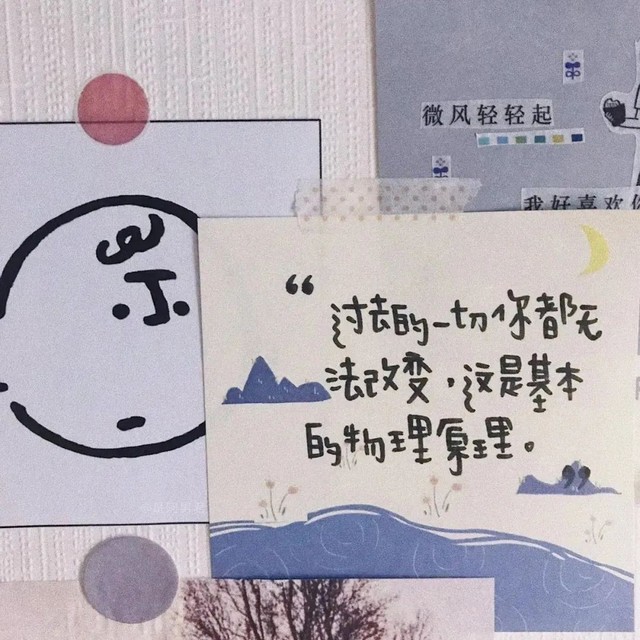 微风轻轻起
我好喜欢你
“过去的一切你都无
法改变，这是基本
的物理原理。”